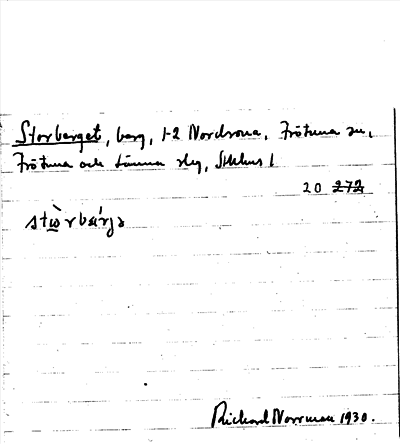 Storberget, berg, 1-2 Nordrona, Frötuna sn,
Frötuna och Länna slg, Sthlms l
20 272
stὼrbærjə
Richard Norrman 1930.